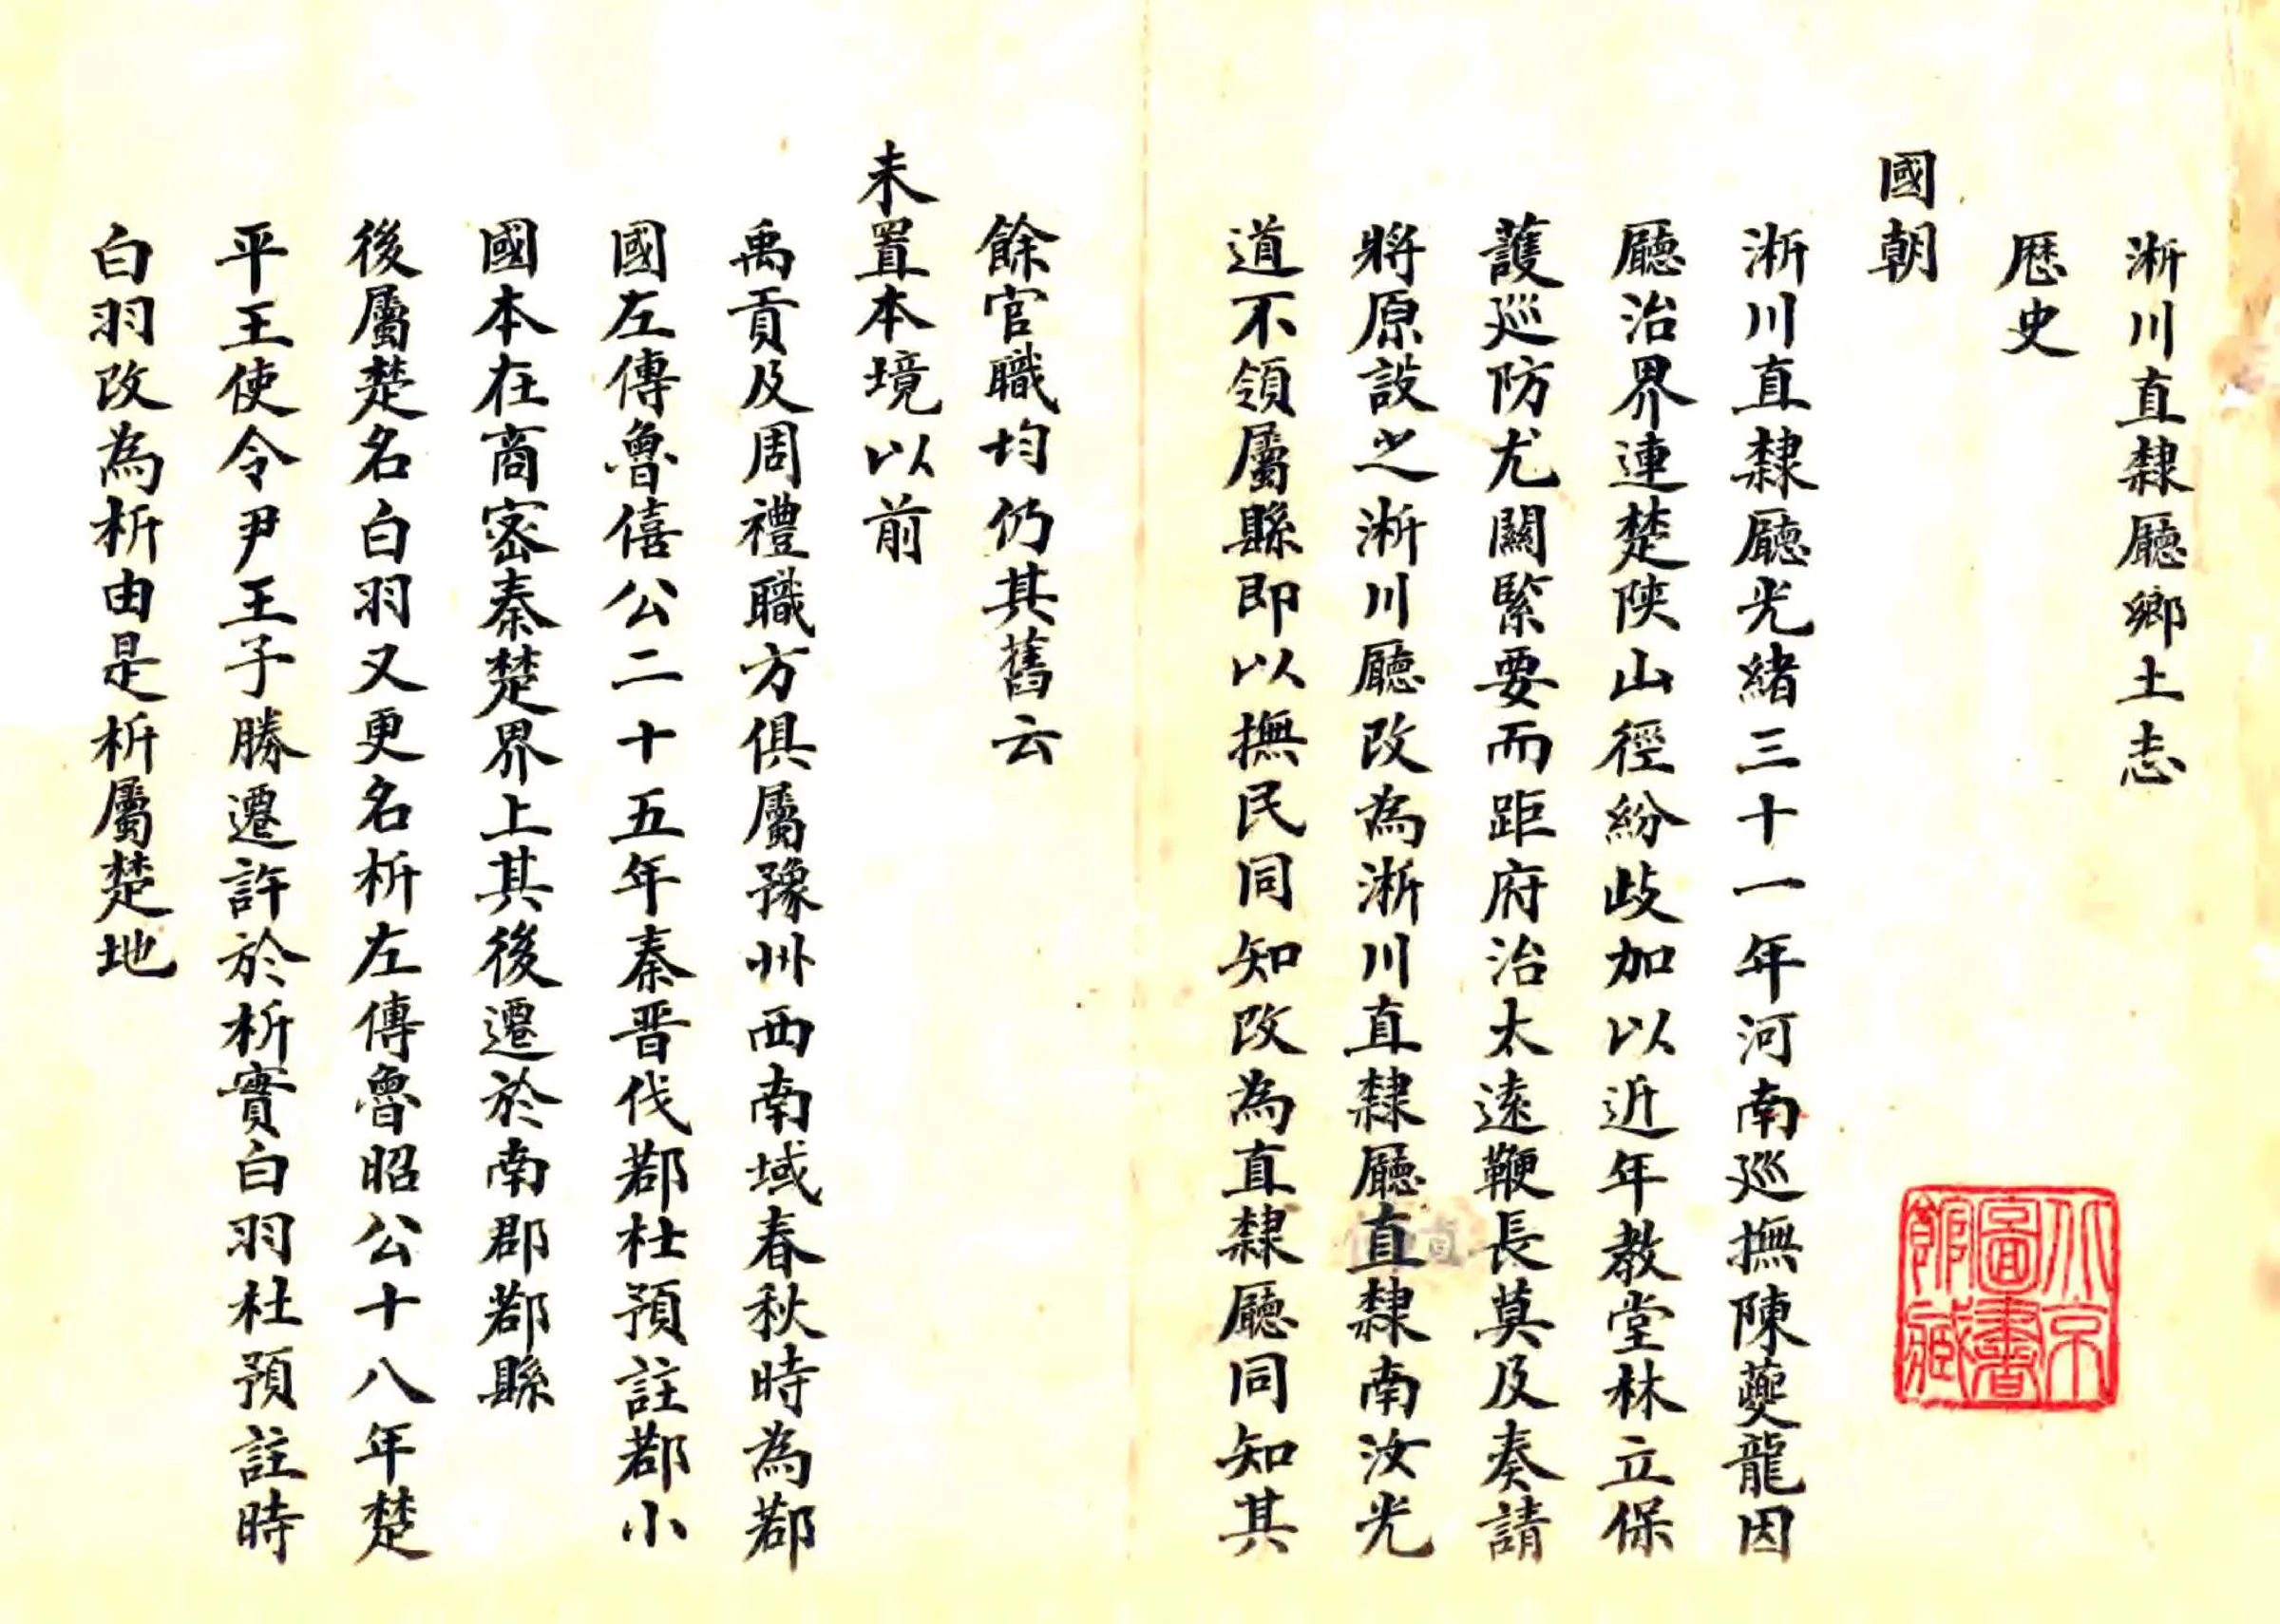 淅川直隸廳鄉土志
歷史
國朝
淅川直隸廳光緒三十一年河南巡撫陳夔龍因
廳治界連楚陝山徑紛歧加以近年教堂林立保
護巡防尤關緊要而距府治太遠鞭長莫及奏請
將原設之淅川廳改為淅川直隸廳直隸南汝光
道不領屬縣即以撫民同知改為直隸廳同知其
餘官職均仍其舊云
未置本境以前
禹貢及周禮職方俱屬豫州西南域春秋時為鄀
國左傳魯僖公二十五年秦晋伐鄀杜預註鄀小
國本在商密秦楚界上其後遷於南郡鄀縣
後屬楚名白羽又更名析左傳魯昭公十八年楚
平王使令尹王子勝遷許於析實白羽杜預註時
白羽改為析由是析屬楚地
北京圖書館藏